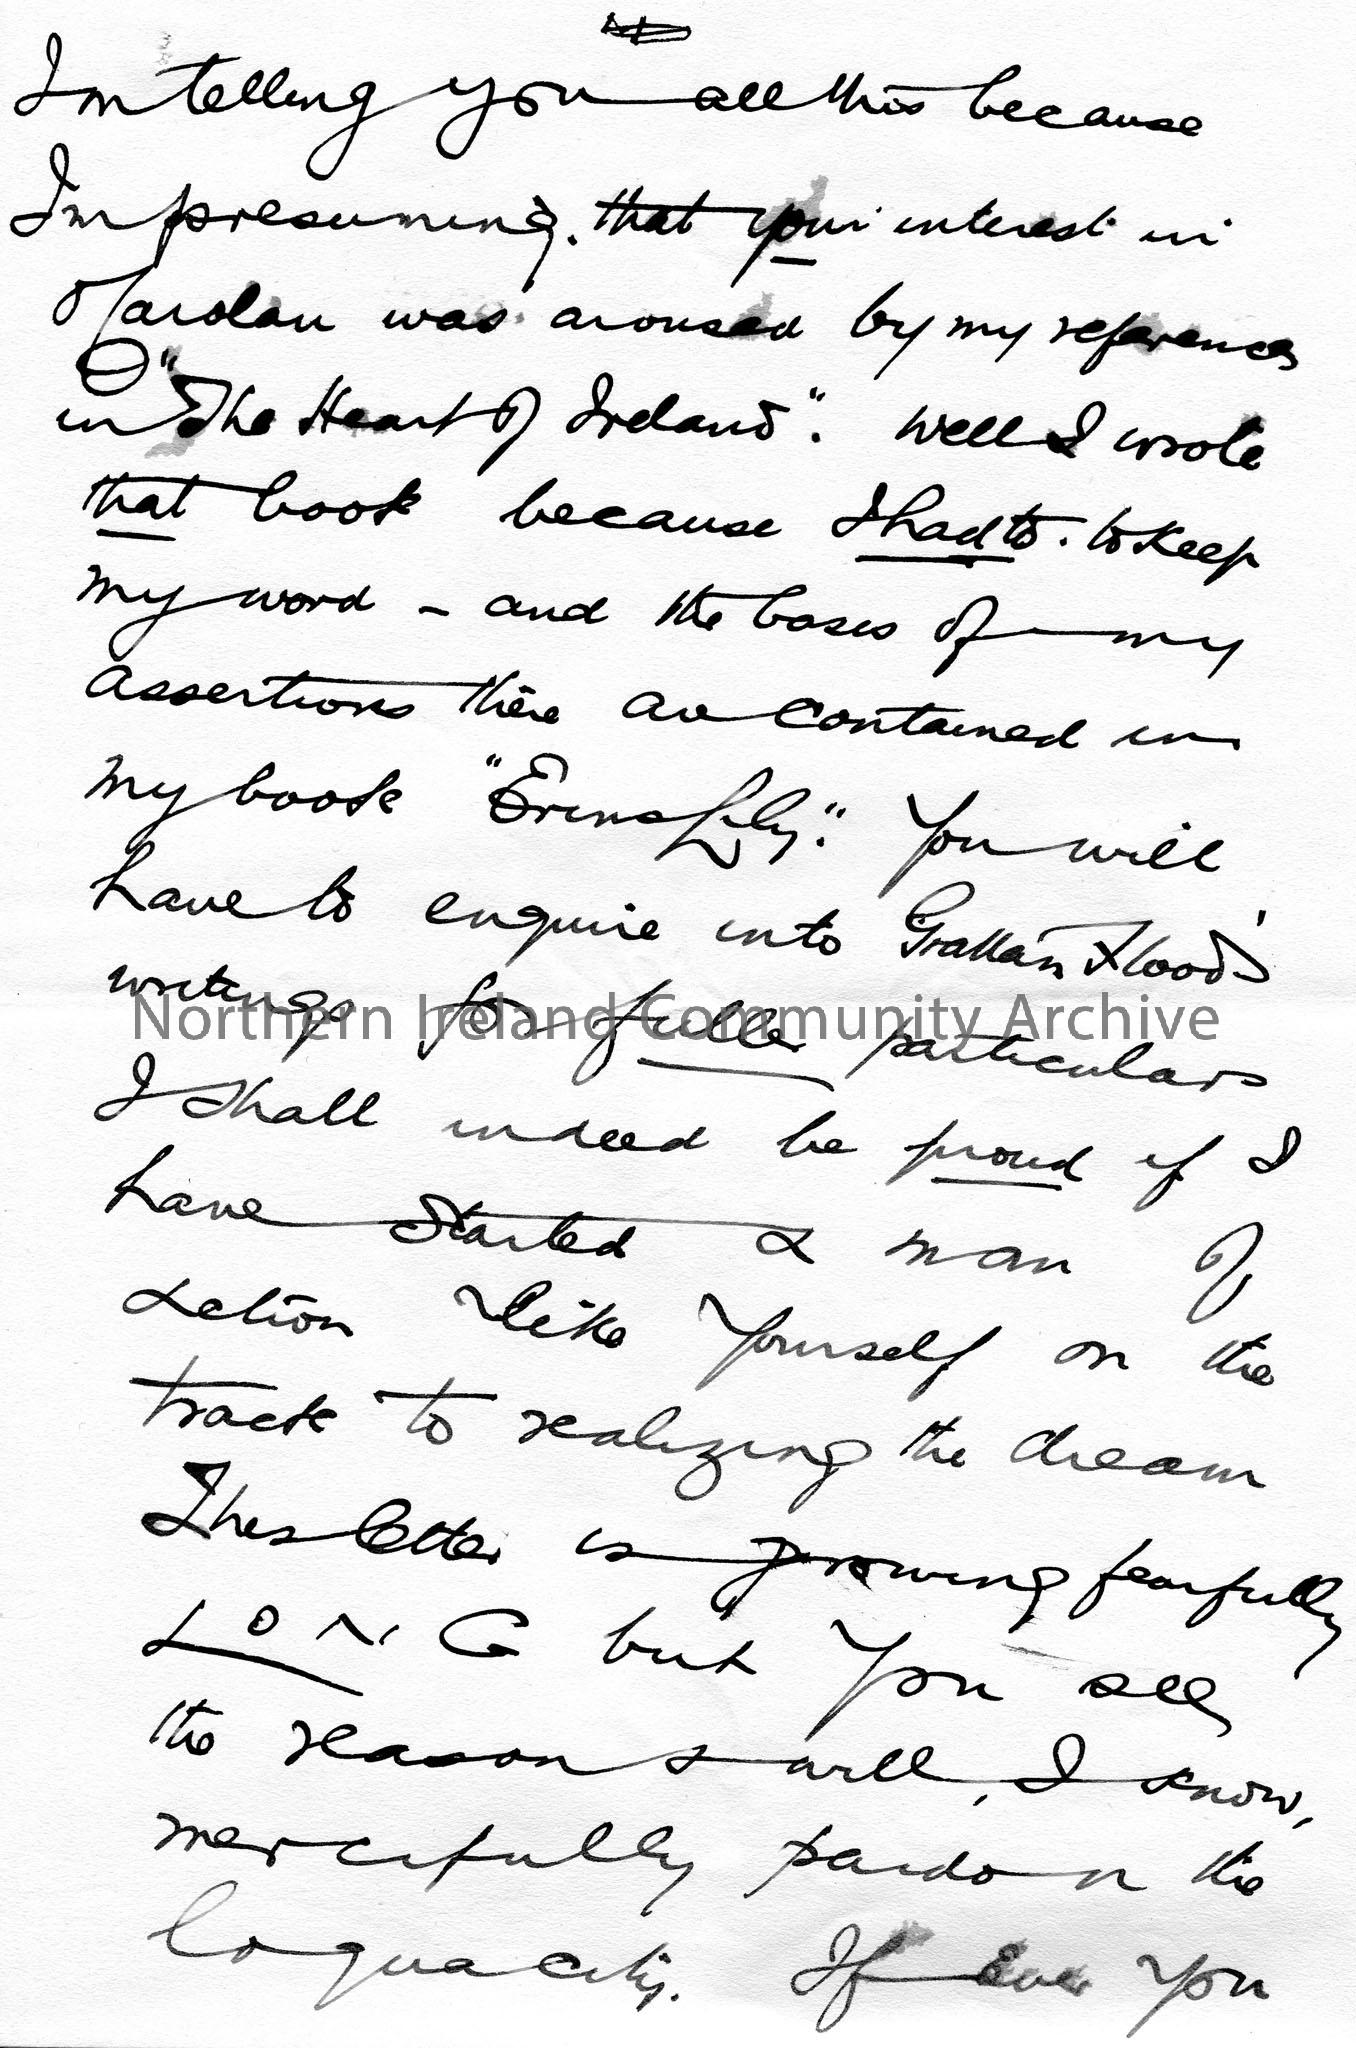 Im telling you all this because
Im presuming. that your interest in
O'Carolan was aroused by my references
in "The Heart of Ireland". Well I wrote
that book because I had to. to keep
my word - and the bases of my
assertions there are contained in
my book "Erins Lily". You will
have to enquire into Grattan Flood's
writings for fuller particulars
Northern Ireland Community Archive
I shall indeed be proud if I
have started a man of
action like yourself on the
track to realizing the dream
This letter is growing fearfully
LONG but you see
the reason & will, I know,
mercifully pardon the
loquacity. If ever you